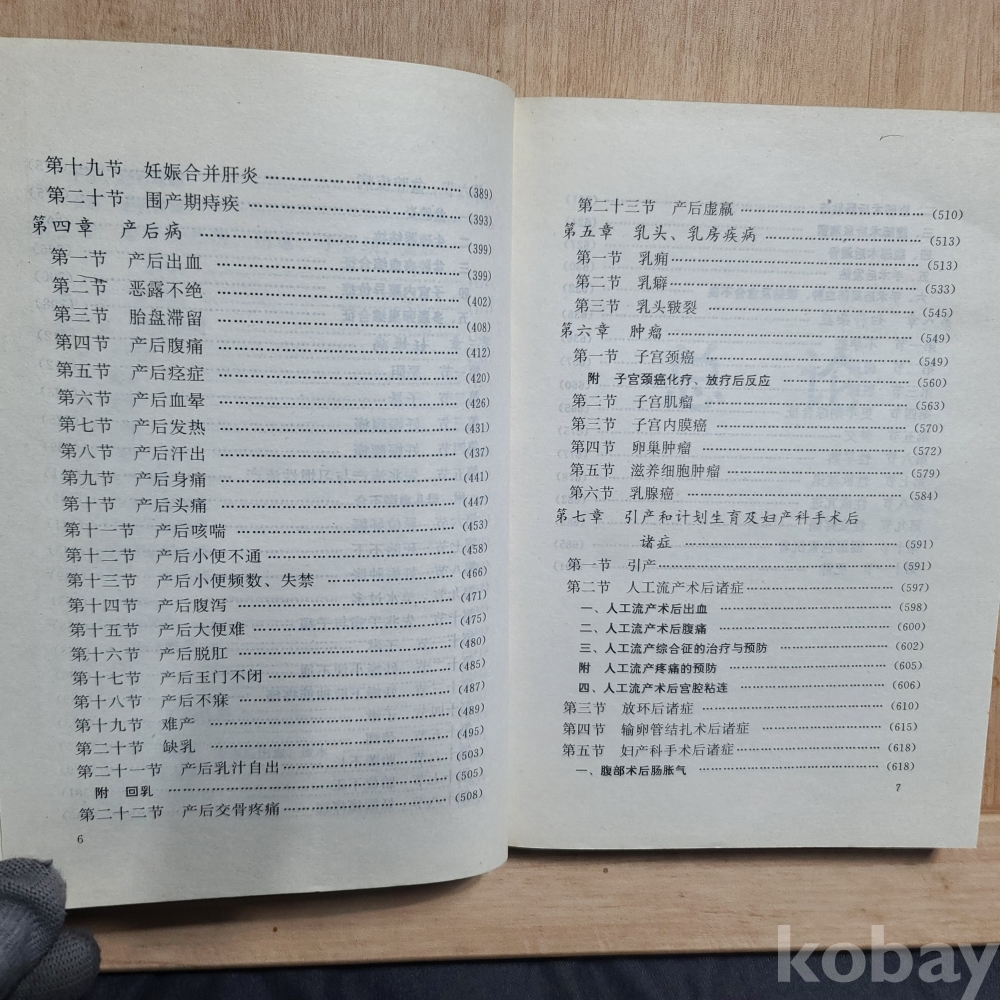 第十九节 妊娠合并肝炎 ……………………………(389)
第二十节 围产期痔疾 ……………………………(393)
第四章 产后病 ……………………………(399)
第一节 产后出血 ……………………………(399)
第二节 恶露不绝 ……………………………(402)
第三节 胎盘滞留 ……………………………(408)
第四节 产后腹痛 ……………………………(412)
第五节 产后痉症 ……………………………(420)
第六节 产后血晕 ……………………………(426)
第七节 产后发热 ……………………………(431)
第八节 产后汗出 ……………………………(437)
第九节 产后身痛 ……………………………(441)
第十节 产后头痛 ……………………………(447)
第十一节 产后咳喘 ……………………………(453)
第十二节 产后小便不通 ……………………………(458)
第十三节 产后小便频数、失禁 ……………………………(466)
第十四节 产后腹泻 ……………………………(471)
第十五节 产后大便难 ……………………………(475)
第十六节 产后脱肛 ……………………………(480)
第十七节 产后玉门不闭 ……………………………(485)
第十八节 产后不寐 ……………………………(487)
第十九节 难产 ……………………………(489)
第二十节 缺乳 ……………………………(495)
第二十一节 产后乳汁自出 ……………………………(503)
附 回乳 ……………………………(505)
第二十二节 产后交骨疼痛 ……………………………(508)
6
第二十三节 产后虚羸 ……………………………(510)
第五章 乳头、乳房疾病 ……………………………(513)
第一节 乳痈 ……………………………(513)
第二节 乳癖 ……………………………(533)
第三节 乳头皲裂 ……………………………(545)
第六章 肿瘤 ……………………………(549)
第一节 子宫颈癌 ……………………………(549)
附 子宫颈癌化疗、放疗后反应 ……………………………(560)
第二节 子宫肌瘤 ……………………………(563)
第三节 子宫内膜癌 ……………………………(570)
第四节 卵巢肿瘤 ……………………………(572)
第五节 滋养细胞肿瘤 ……………………………(579)
第六节 乳腺癌 ……………………………(584)
第七章 引产和计划生育及妇产科手术后
诸症 ……………………………(591)
第一节 引产 ……………………………(591)
第二节 人工流产术后诸症 ……………………………(597)
一、人工流产术后出血 ……………………………(598)
二、人工流产术后腹痛 ……………………………(600)
三、人工流产综合征的治疗与预防 ……………………………(602)
附 人工流产疼痛的预防 ……………………………(605)
四、人工流产术后宫腔粘连 ……………………………(606)
第三节 放环后诸症 ……………………………(610)
第四节 输卵管结扎术后诸症 ……………………………(615)
第五节 妇产科手术后诸症 ……………………………(618)
一、腹部术后肠胀气 ……………………………(618)
7
kobay